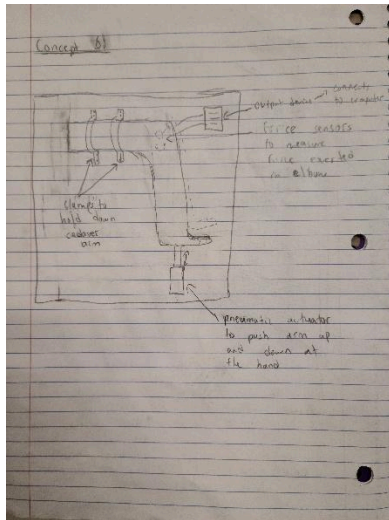 Concept 6)
output device → connects
to computer
Force sensors
to measure
force exerted
in elbow
Clamps to
hold down
cadaver
arm
pneumatic actuator
to push arm up
and down at
the hand